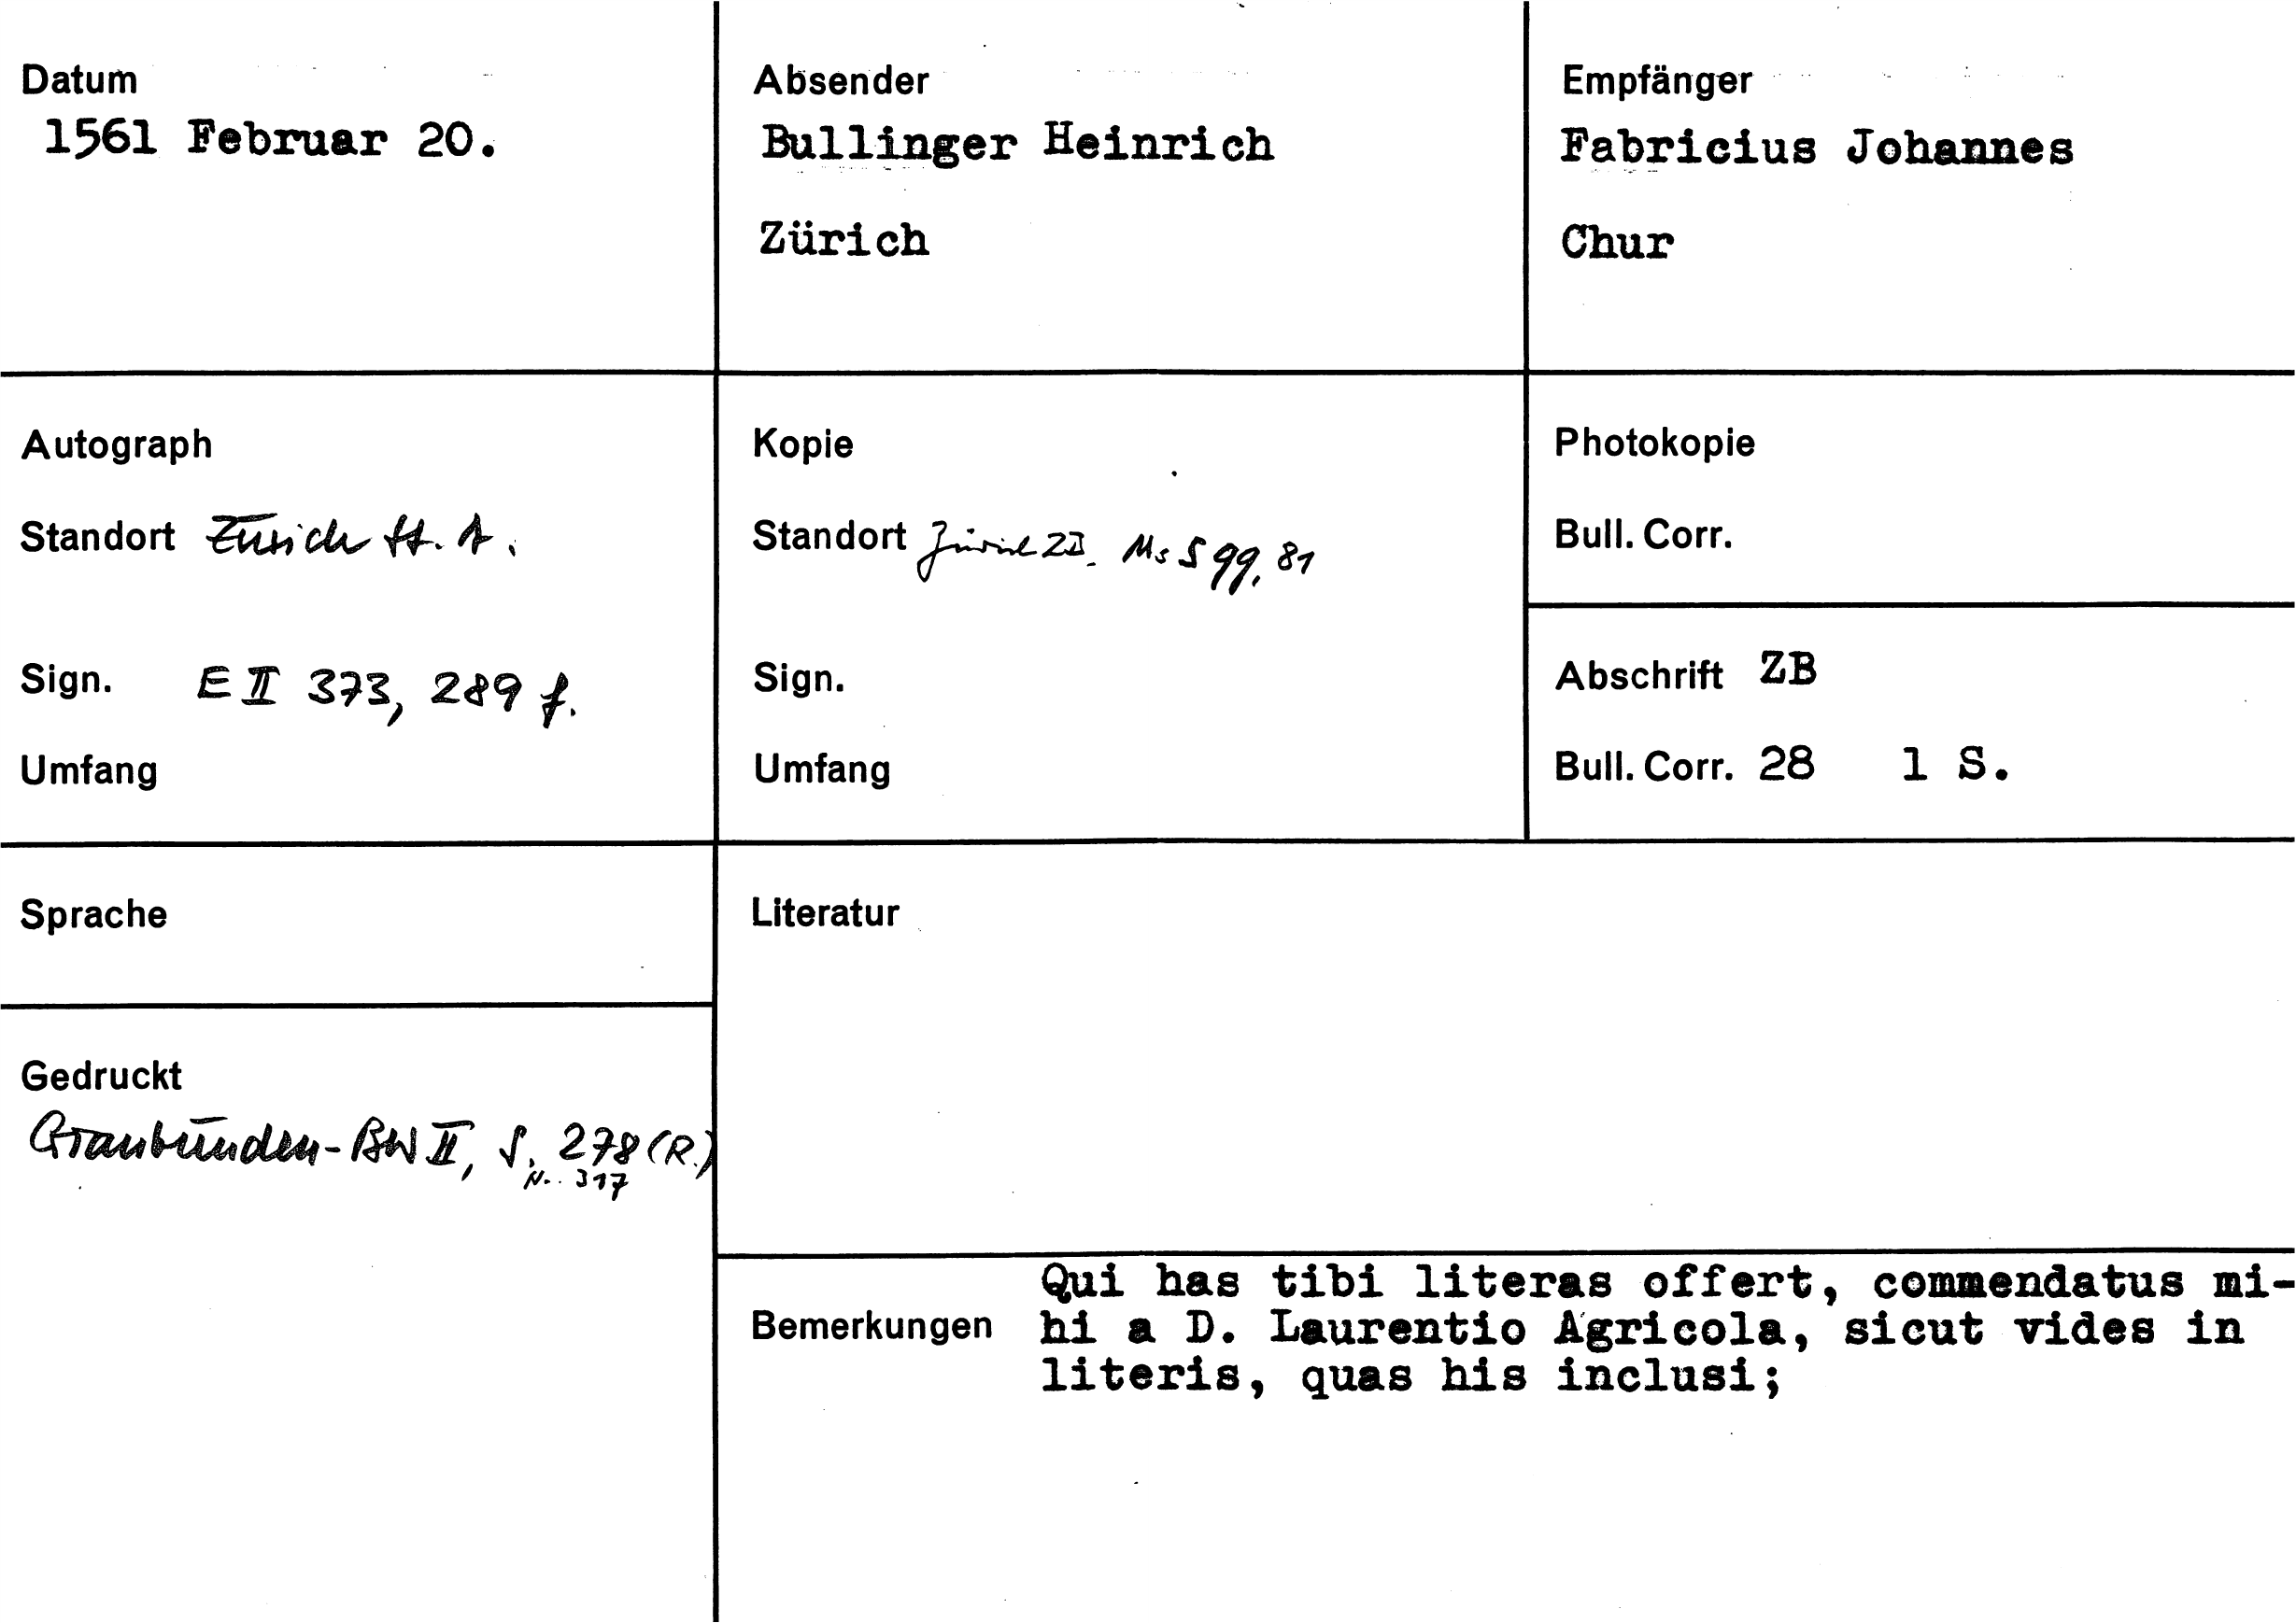 Datum
1561 Februar 20.
Absender
Bullinger Heinrich
Zürich
Empfänger
Fabricius Johannes
Chur
Autograph
Standort Zürich St. A.
Sign. E II 373, 289 f.
Umfang
Kopie
Standort Zürich ZB. Ms S 99, 81
Sign.
Umfang
Photokopie
Bull. Corr.
Abschrift ZB
Bull. Corr. 28 1 S.
Sprache
Gedruckt
Graubünden-BW II, S. 278 (R.)
N. 317
Literatur
Bemerkungen
Qui has tibi literas offert, commendatus mi-
hi a D. Laurentio Agricola, sicut vides in
literis, quas his inclusi;